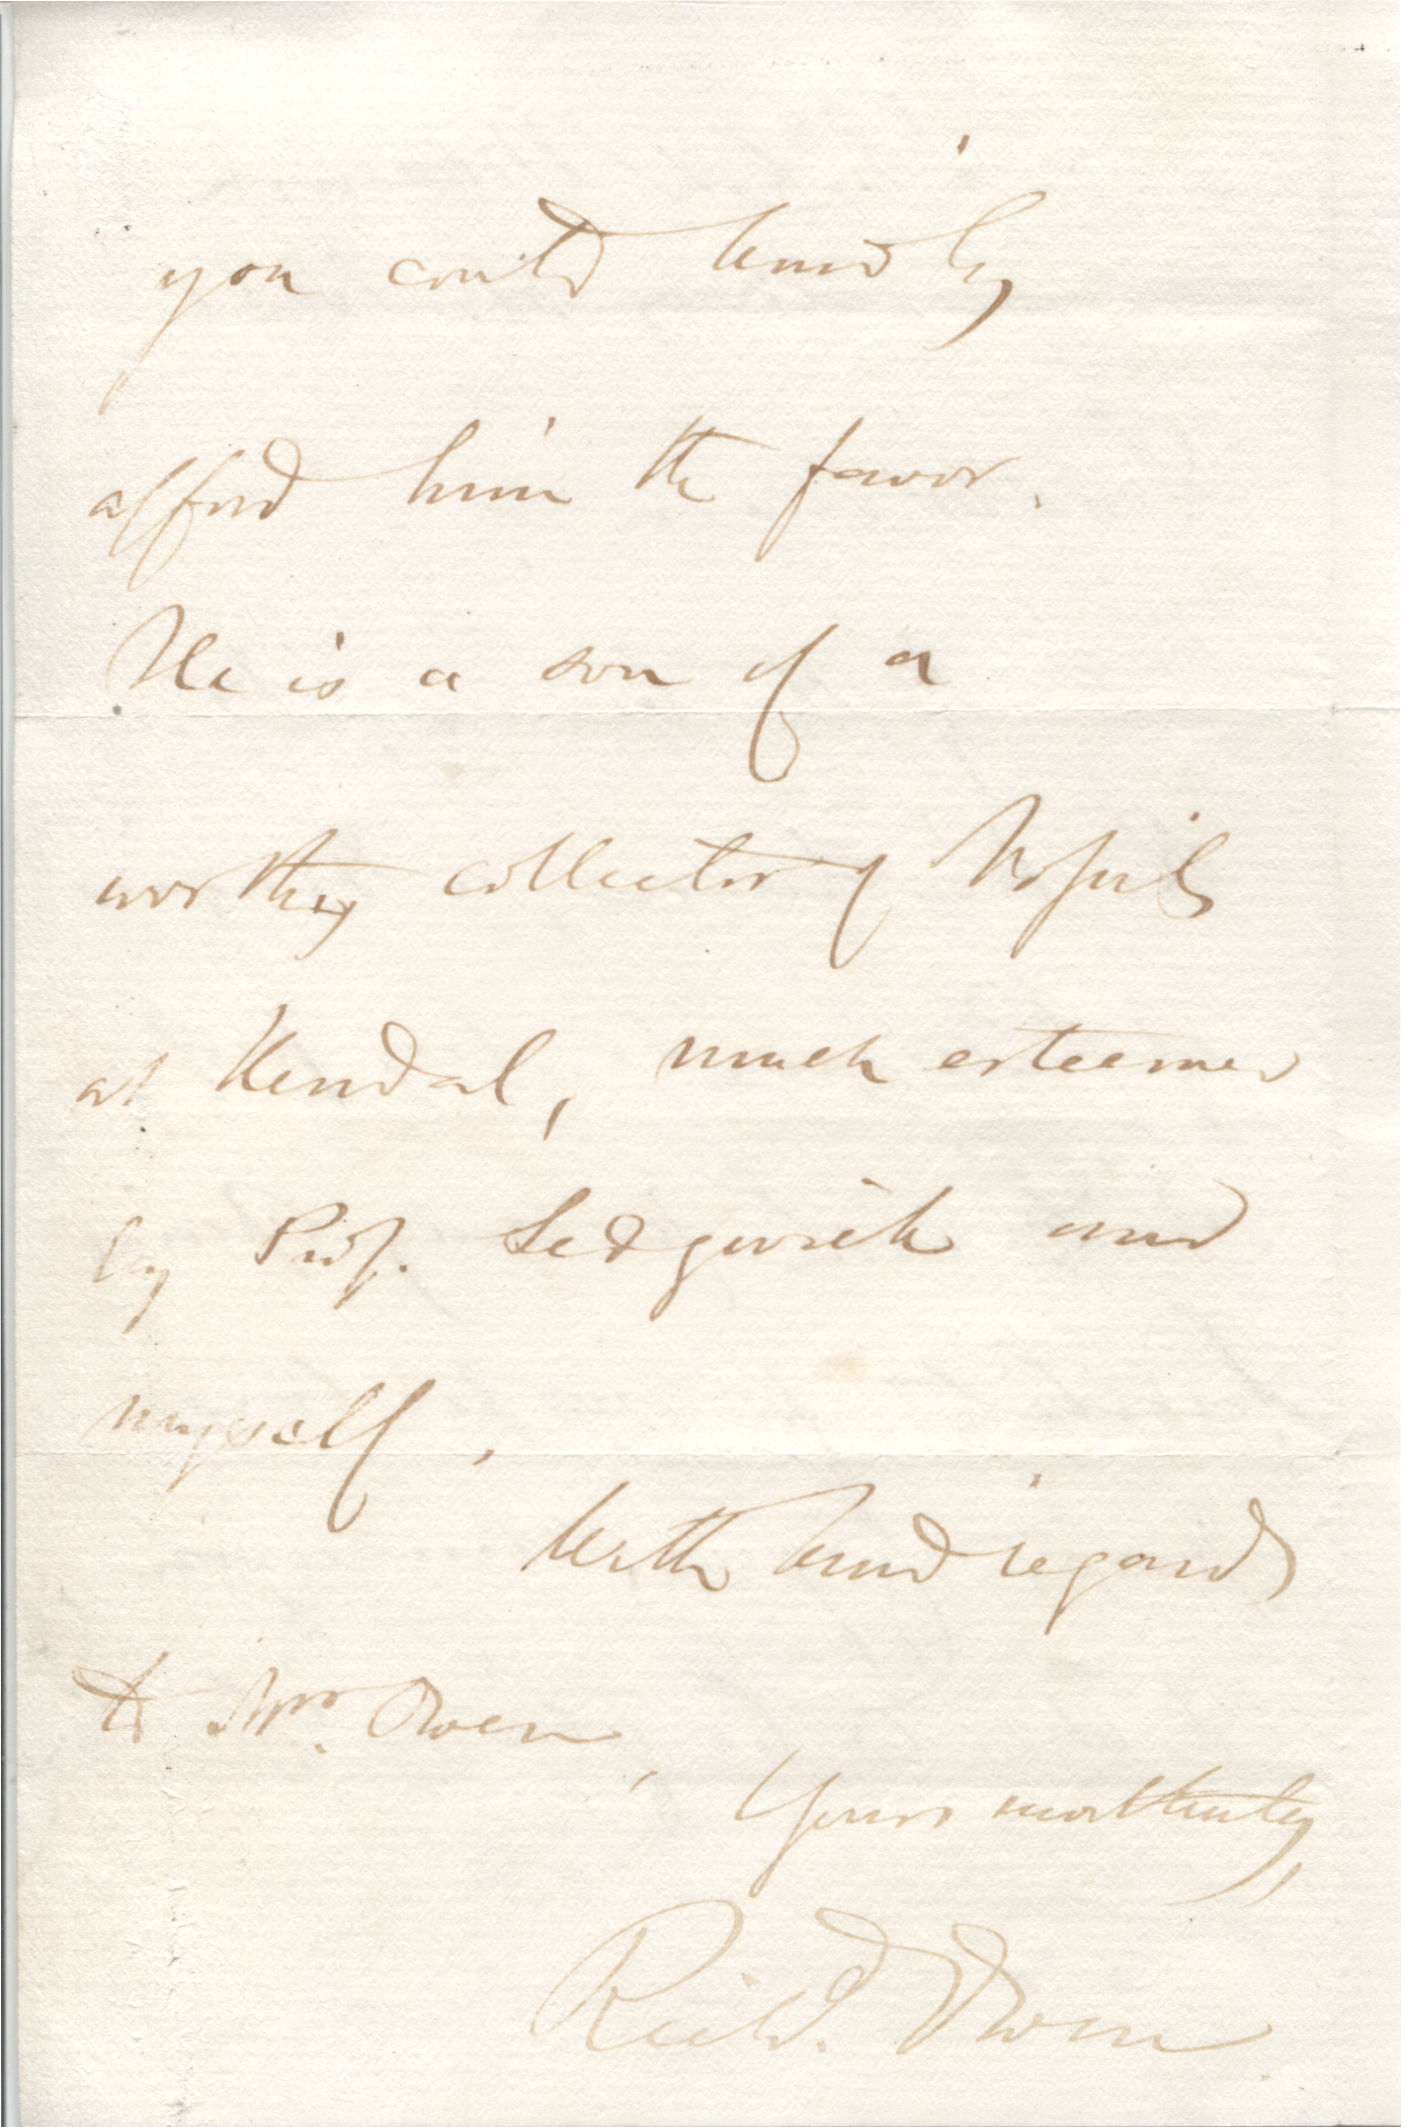 you could kindly
afford him the favor.
He is a son of a
worthy collector of Fossils
at Kendal, much esteemed
by Prof. Sedgwick and
myself.
With kind regards
to Mrs. Owen,
Yours
Richd. Owen.